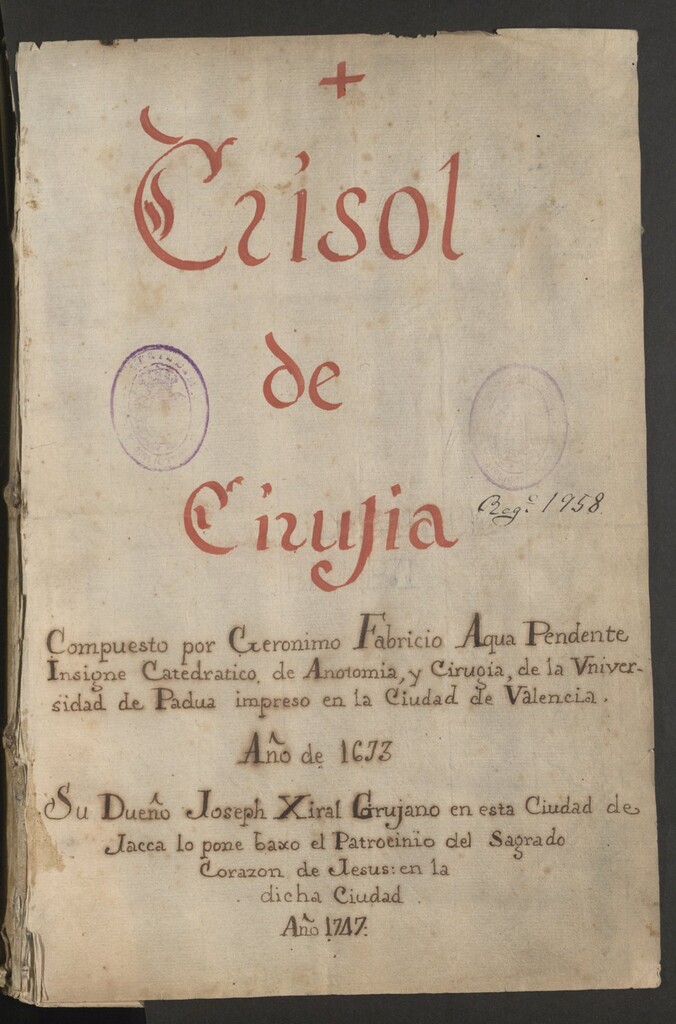 +
Crisol
de
Cirujia
Reg.º 1958
Compuesto por Geronimo Fabricio Aqua Pendente
Insigne Catedratico, de Anotomia, y Cirugia, de la Vniver-
sidad de Padua impreso en la Ciudad de Valencia.
Año de 1673
Su Dueño Joseph Xiral Cirujano en esta Ciudad de
Jacca lo pone baxo el Patrocinio del Sagrado
Corazon de Jesus: en la
. dicha Ciudad .
Año 1747: